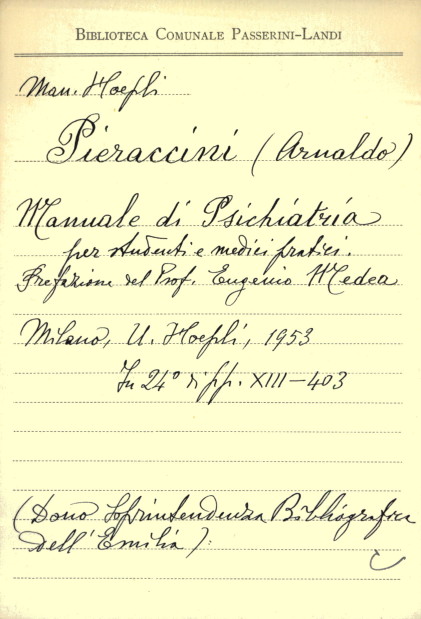 BIBLIOTECA COMUNALE PASSERINI-LANDI
Man. Hoepli
Pieraccini (Arnaldo)
Manuale di Psichiatria
per studenti e medici pratici.
Prefazione del Prof. Eugenio Medea
Milano, U. Hoepli, 1953
In 24° di pp. XIII-403
(Dono Soprintendenza Bibliografica
dell'Emilia).